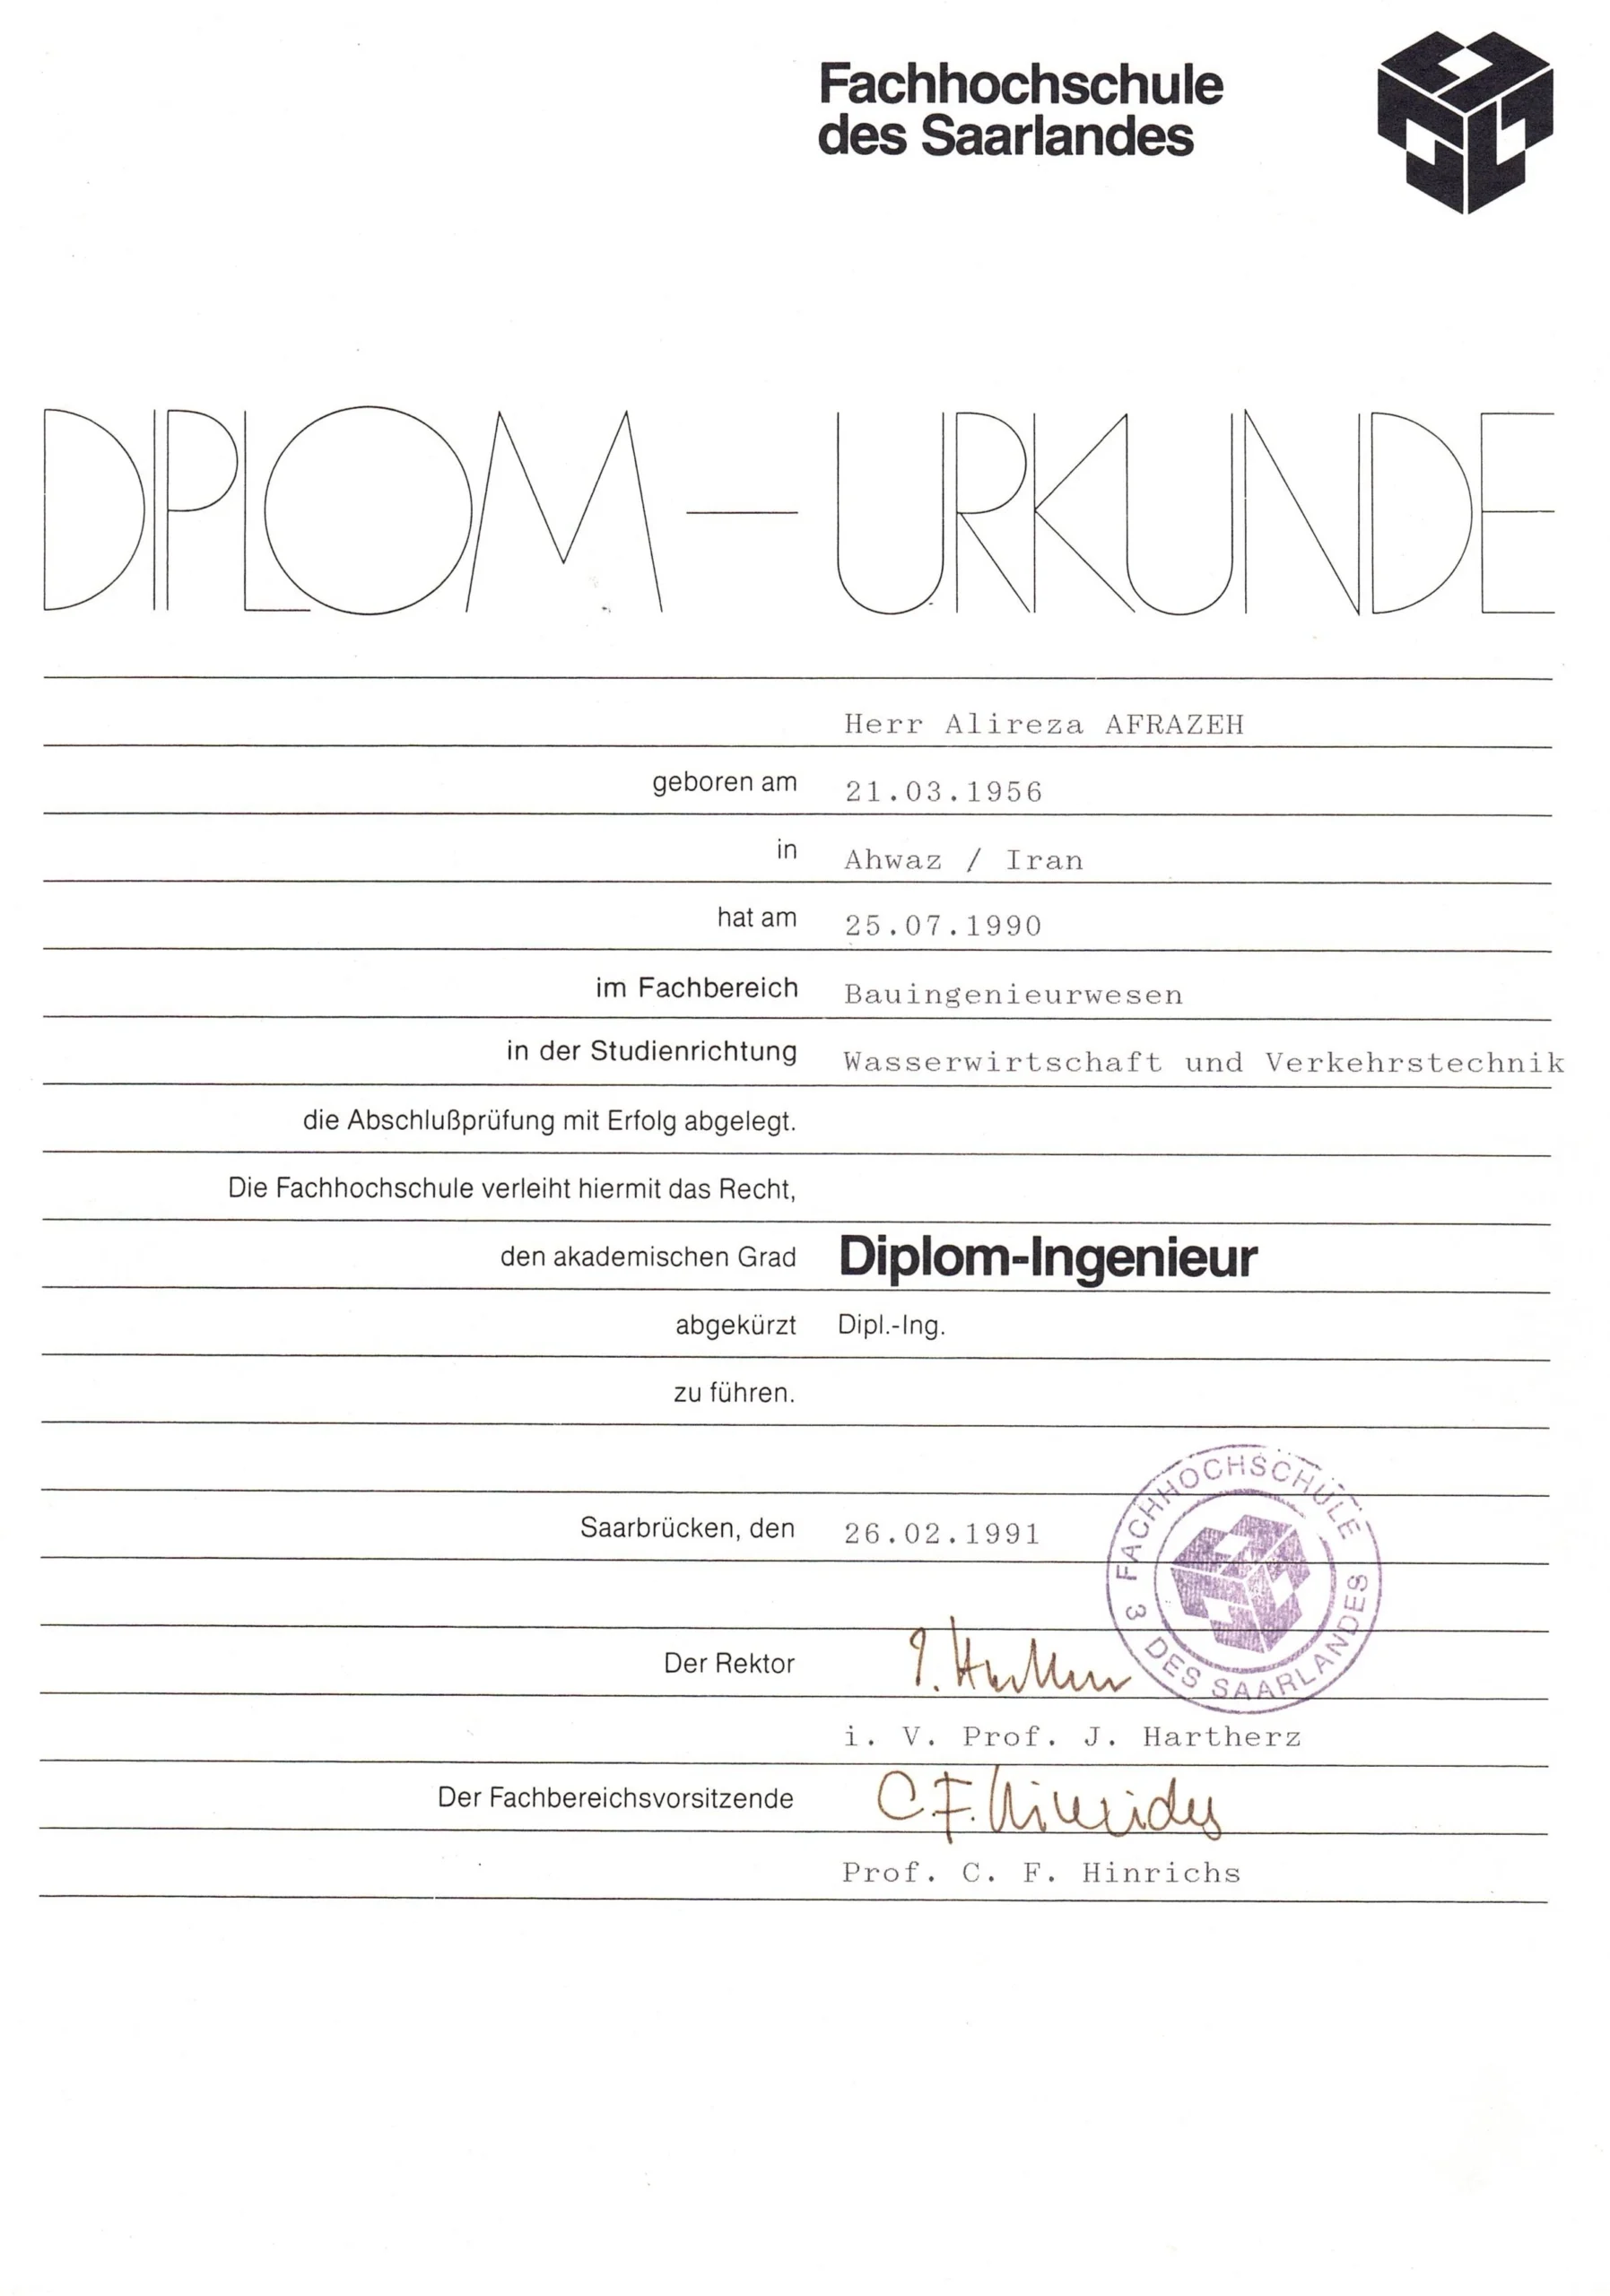 Fachhochschule
des Saarlandes
DIPLOM — URKUNDE
Herr Alireza AFRAZEH
geboren am 21.03.1956
in Ahwaz / Iran
hat am 25.07.1990
im Fachbereich Bauingenieurwesen
in der Studienrichtung Wasserwirtschaft und Verkehrstechnik
die Abschlußprüfung mit Erfolg abgelegt.
Die Fachhochschule verleiht hiermit das Recht,
den akademischen Grad Diplom-Ingenieur
abgekürzt Dipl.-Ing.
zu führen.
FACHHOCHSCHULE
DES SAARLANDES
3
Saarbrücken, den 26.02.1991
Der Rektor J. Hartherz
i. V. Prof. J. Hartherz
Der Fachbereichsvorsitzende C. F. Hinrichs
Prof. C. F. Hinrichs